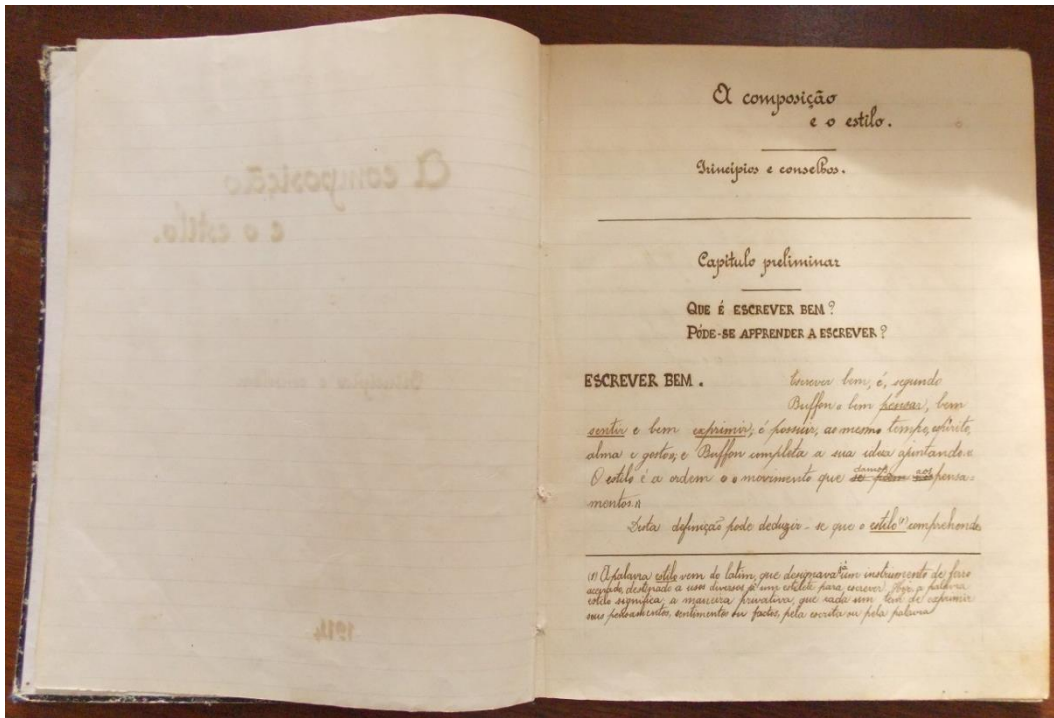 A composição
e o estilo.
Principios e conselhos.
1914
A composição
e o estilo.
Principios e conselhos.
Capitulo preliminar
QUE É ESCREVER BEM?
PÓDE-SE APPRENDER A ESCREVER?
ESCREVER BEM. Escrever bem, é, segundo
Buffon « bem pensar, bem
sentir e bem exprimir, é possuir, ao mesmo tempo, espirito,
alma e gosto»; e Buffon completa a sua idea ajuntando: «
O estilo é a ordem e o movimento que damos aos pensa-
mentos.»
Desta definição pode deduzir-se que o estilo (1) comprehende
(1) A palavra estilo vem do latim, que designava um instrumento de ferro
acerado, destinado a usos diversos já um estilete para escrever. Hoje a palavra
estilo significa, a maneira privativa, que cada um tem de exprimir
seus pensamentos, sentimentos ou factos, pela escrita ou pela palavra